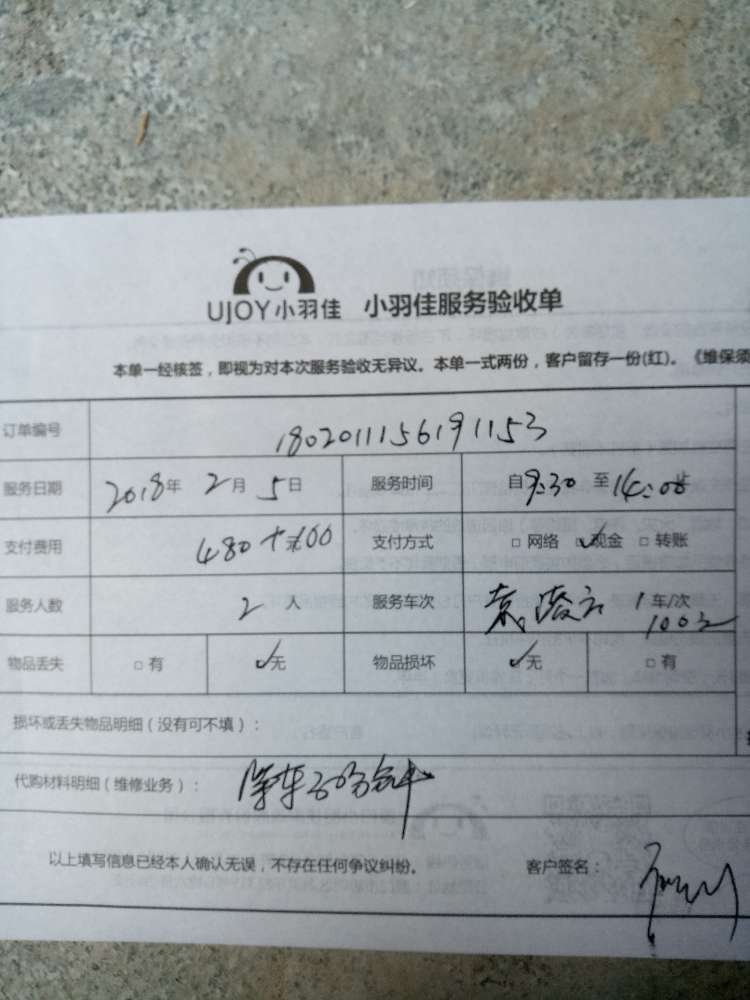 UJOY小羽佳 小羽佳服务验收单
本单一经核签，即视为对本次服务验收无异议。本单一式两份，客户留存一份(红)。《维保须
订单编号 1802011156191153
服务日期 2018年 2月 5日 服务时间 自9:30 至14:00止
支付费用 480+100 元 支付方式 □ 网络 ✓现金 □ 转账
服务人数 2 人 服务车次 1 车/次
100元
物品丢失 □ 有 ✓无 物品损坏 ✓无 □ 有
损坏或丢失物品明细（没有可不填）：
代购材料明细（维修业务）：
以上填写信息已经本人确认无误，不存在任何争议纠纷。 客户签名：